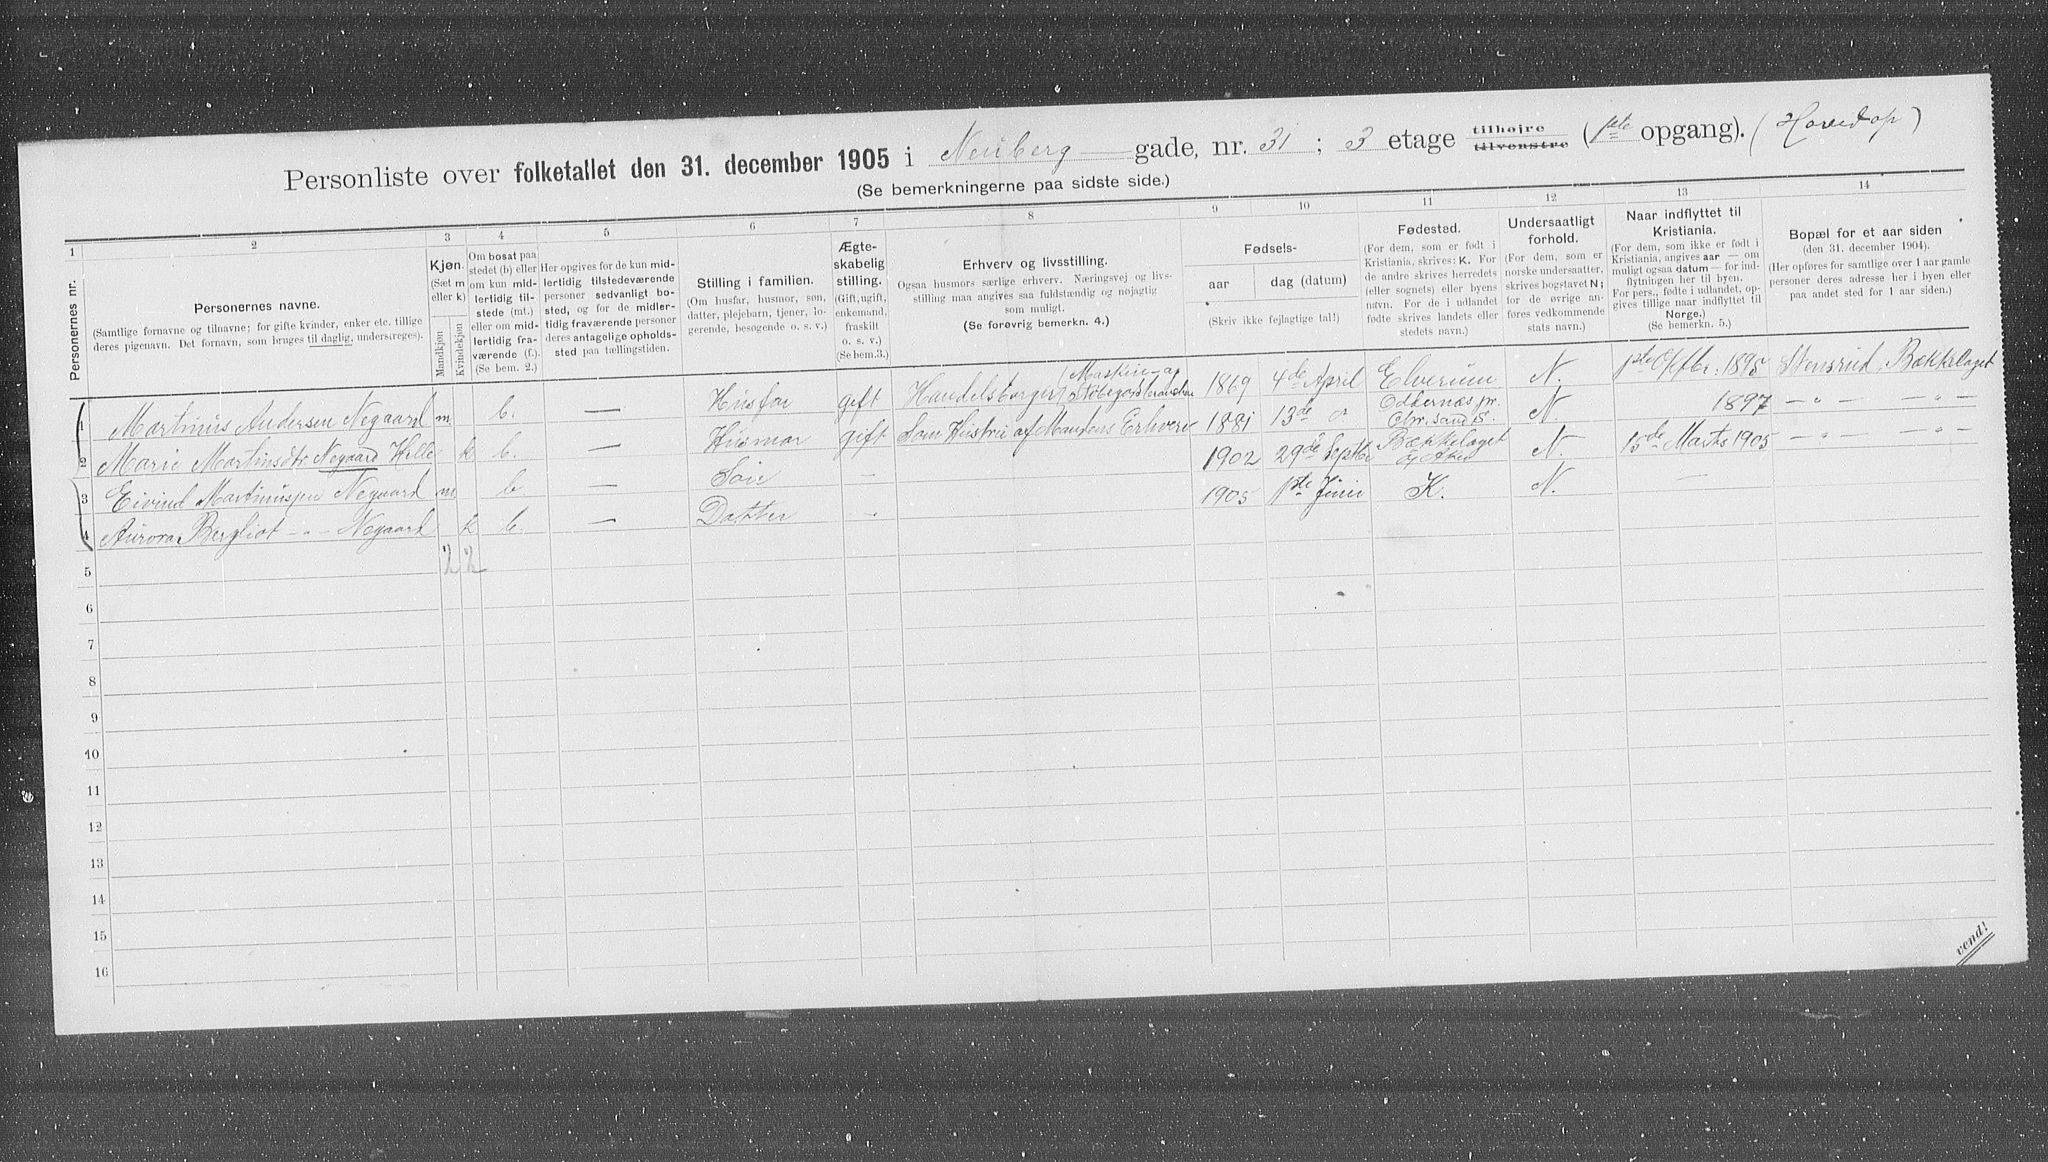 Personliste over folketallet den 31. december 1905 i Neuberg gade, nr. 31 ; 3 etage tilhøjre tilvenstre (1ste opgang). (Hovedop)
(Se bemerkningerne paa sidste side.)
1 2 3 4 5 6 7 8 9 10 11 12 13 14
Personernes nr.
Personernes navne.
(Samtlige fornavne og tilnavne; for gifte kvinder, enker etc. tillige
deres pigenavn. Det fornavn, som bruges til daglig, understreges).
Kjøn.
(Sæt m
eller k)
Mandkjøn
Kvindekjøn
Om bosat paa
stedet (b) eller
om kun mid-
lertidig til-
stede (mt.)
eller om mid-
lertidig fra-
værende (f.).
(Se bem. 2.)
Her opgives for de kun mid-
lertidig tilstedeværende
personer sedvanligt bo-
sted, og for de midler-
tidig fraværende personer
deres antagelige opholds-
sted paa tællingstiden.
Stilling i familien.
(Om husfar, husmor, søn,
datter, plejebarn, tjener, lo-
gerende, besøgende o. s. v.)
Ægte-
skabelig
stilling.
(Gift, ugift,
enkemand,
fraskilt
o. s. v.)
(Se bem.3.)
Erhverv og livsstilling.
Ogsaa husmors særlige erhverv. Næringsvej og livs-
stilling maa angives saa fuldstændig og nøjagtig
som muligt.
(Se forøvrig bemerkn. 4.)
Fødsels-
aar dag (datum)
(Skriv ikke fejlagtige tal!)
Fødested.
(For dem, som er født i
Kristiania, skrives: K. For
de andre skrives herredets
(eller sognets) eller byens
navn. For de i udlandet
fødte skrives landets eller
stedets navn.)
Undersaatligt
forhold.
(For dem, som er
norske undersaatter,
skrives bogstavet N;
for de øvrige an-
føres vedkommende
stats navn.)
Naar indflyttet til
Kristiania.
(For dem, som ikke er født i
Kristiania, angives aar — om
muligt ogsaa datum — for ind-
flytningen her til byen.
For pers., fødte i udlandet, op-
gives tillige naar indflyttet til
Norge.)
(Se bemerkn. 5.)
Bopæl for et aar siden
(den 31. december 1904).
(Her opføres for samtlige over 1 aar gamle
personer deres adresse her i byen eller
paa andet sted for 1 aar siden.)
1 Martinus Andersen Negaard m b. — Husfar gift Handelsborger (Maskin- og 1869 4de April Elverum N. 1ste Oktbr. 1895 Stensrud, Bækkelaget
2 Marie Martinsdtr Negaard Helle k b. — Husmor gift Som Hustru af Mandens Erhverv 1881 13de Oddernæs pr. Chr.sand S. N. 1897 — " — — " —
3 Eivind Martinussen Negaard m b — Søn — 1902 29de Septbr Bækkelaget N. 15de Marts 1905 — " — — " —
4 Aurora Bergliot — " — Negaard k b. — Datter — 1905 1ste Juni K. N. —
2 2
5
6
7
8
9
10
11
12
13
14
15
16
vend!